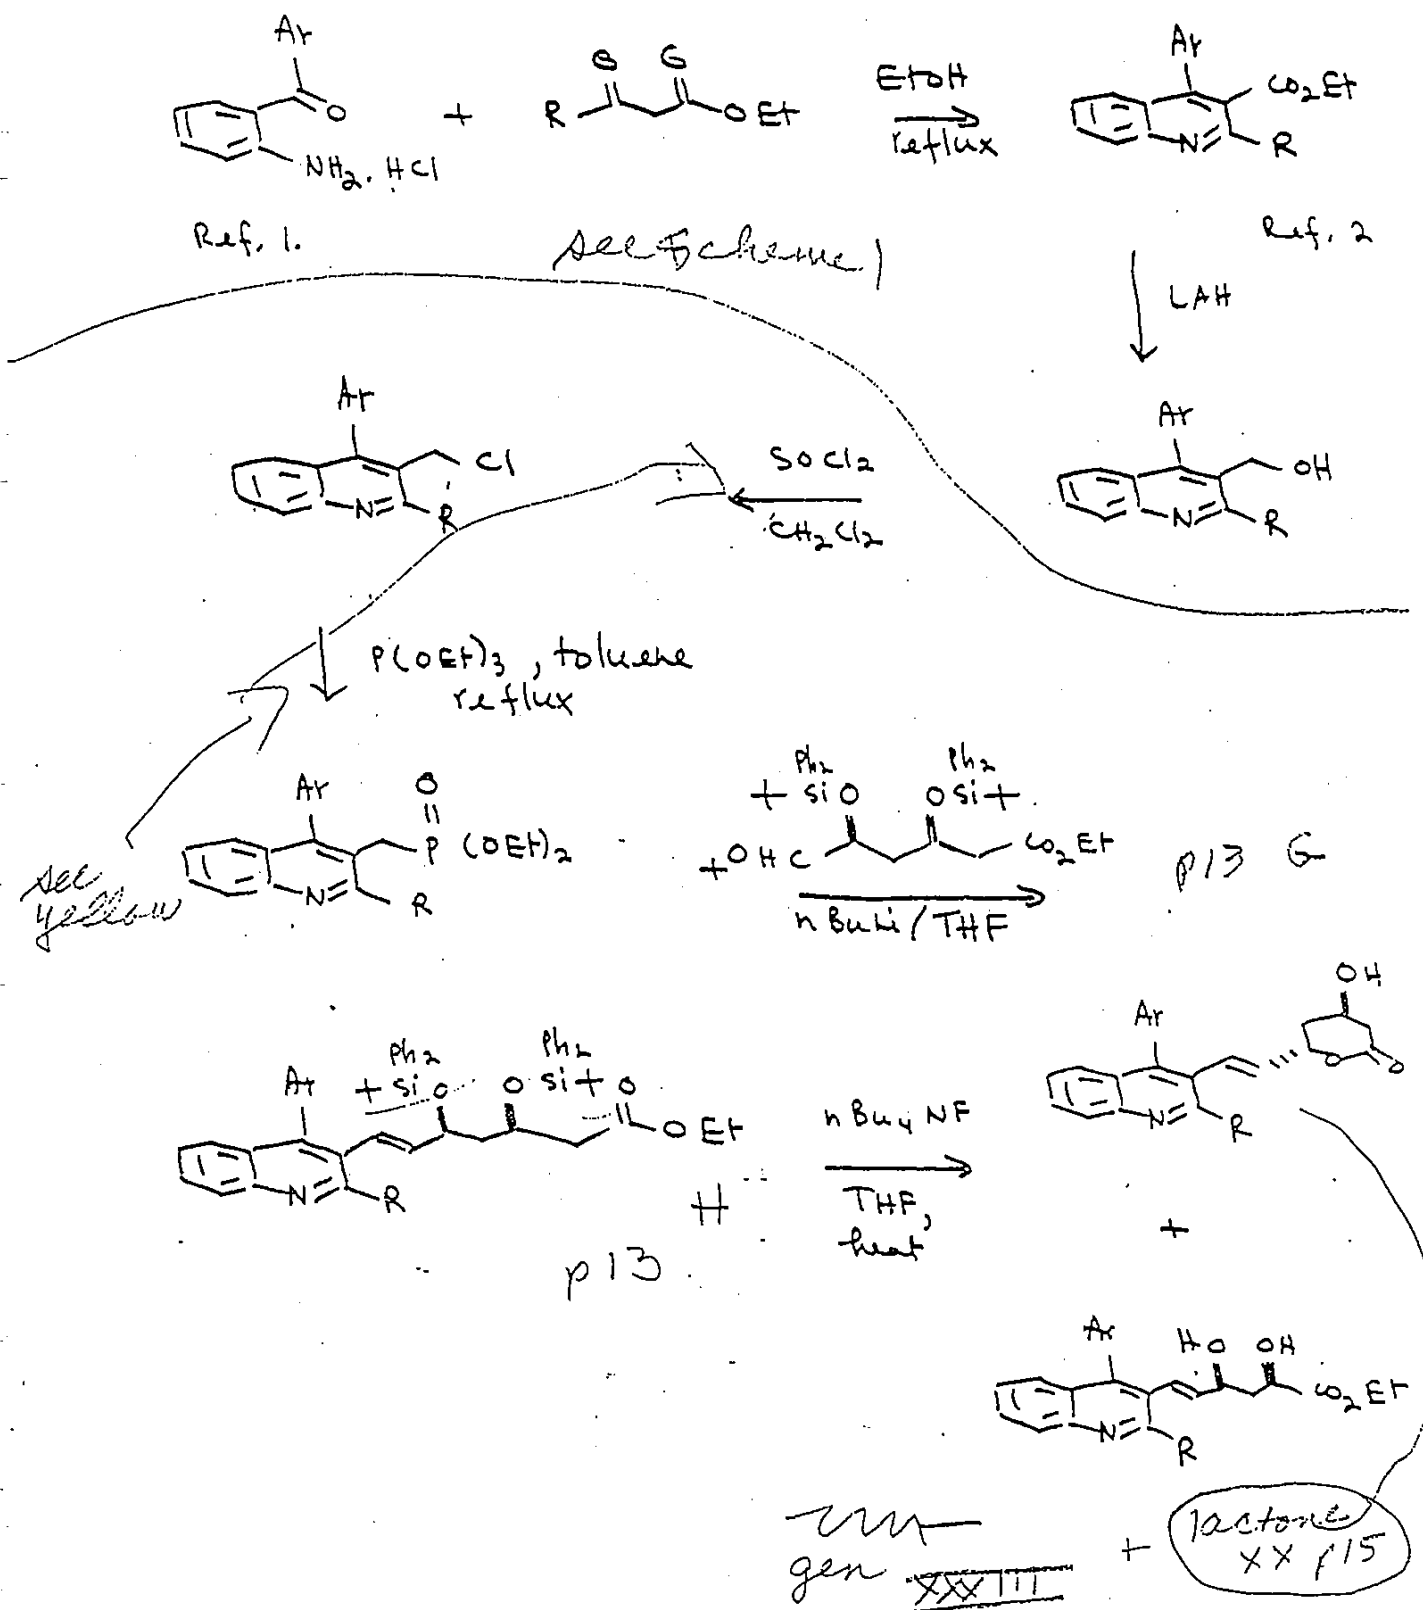 Ar
O
NH2 . HCl
+
R
O O
OEt
EtOH
reflux
Ar
CO2Et
N
R
Ref. 1.
see Scheme 1
Ref. 2
LAH
Ar
Cl
N
R
SOCl2
CH2Cl2
Ar
OH
N
R
P(OEt)3 , toluene
reflux
Ar
O
P (OEt)2
N
R
see
yellow
Ph2 Ph2
+ Si O O Si +
+ OHC
CO2Et
n BuLi / THF
p13 G
Ar
Ph2 Ph2
+ Si O O Si + O
OEt
N
R
H
p13
n Bu4 NF
THF,
heat
OH
Ar
O
O
N
R
+
Ar
HO OH
CO2Et
N
R
gen XXXIII
+
lactone
XX p15